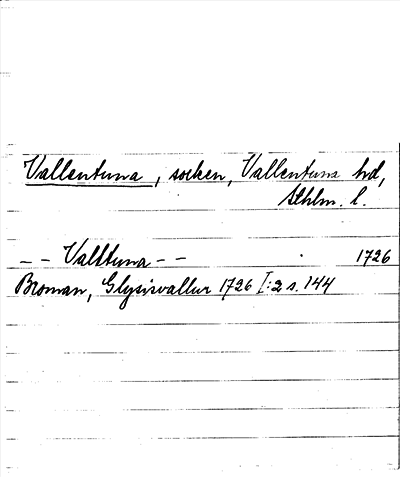 Vallentuna, socken, Vallentuna hd,
Sthlm. l.
-- Valltuna -- 1726
Broman, Glysisvallur 1726 I:2 s. 144